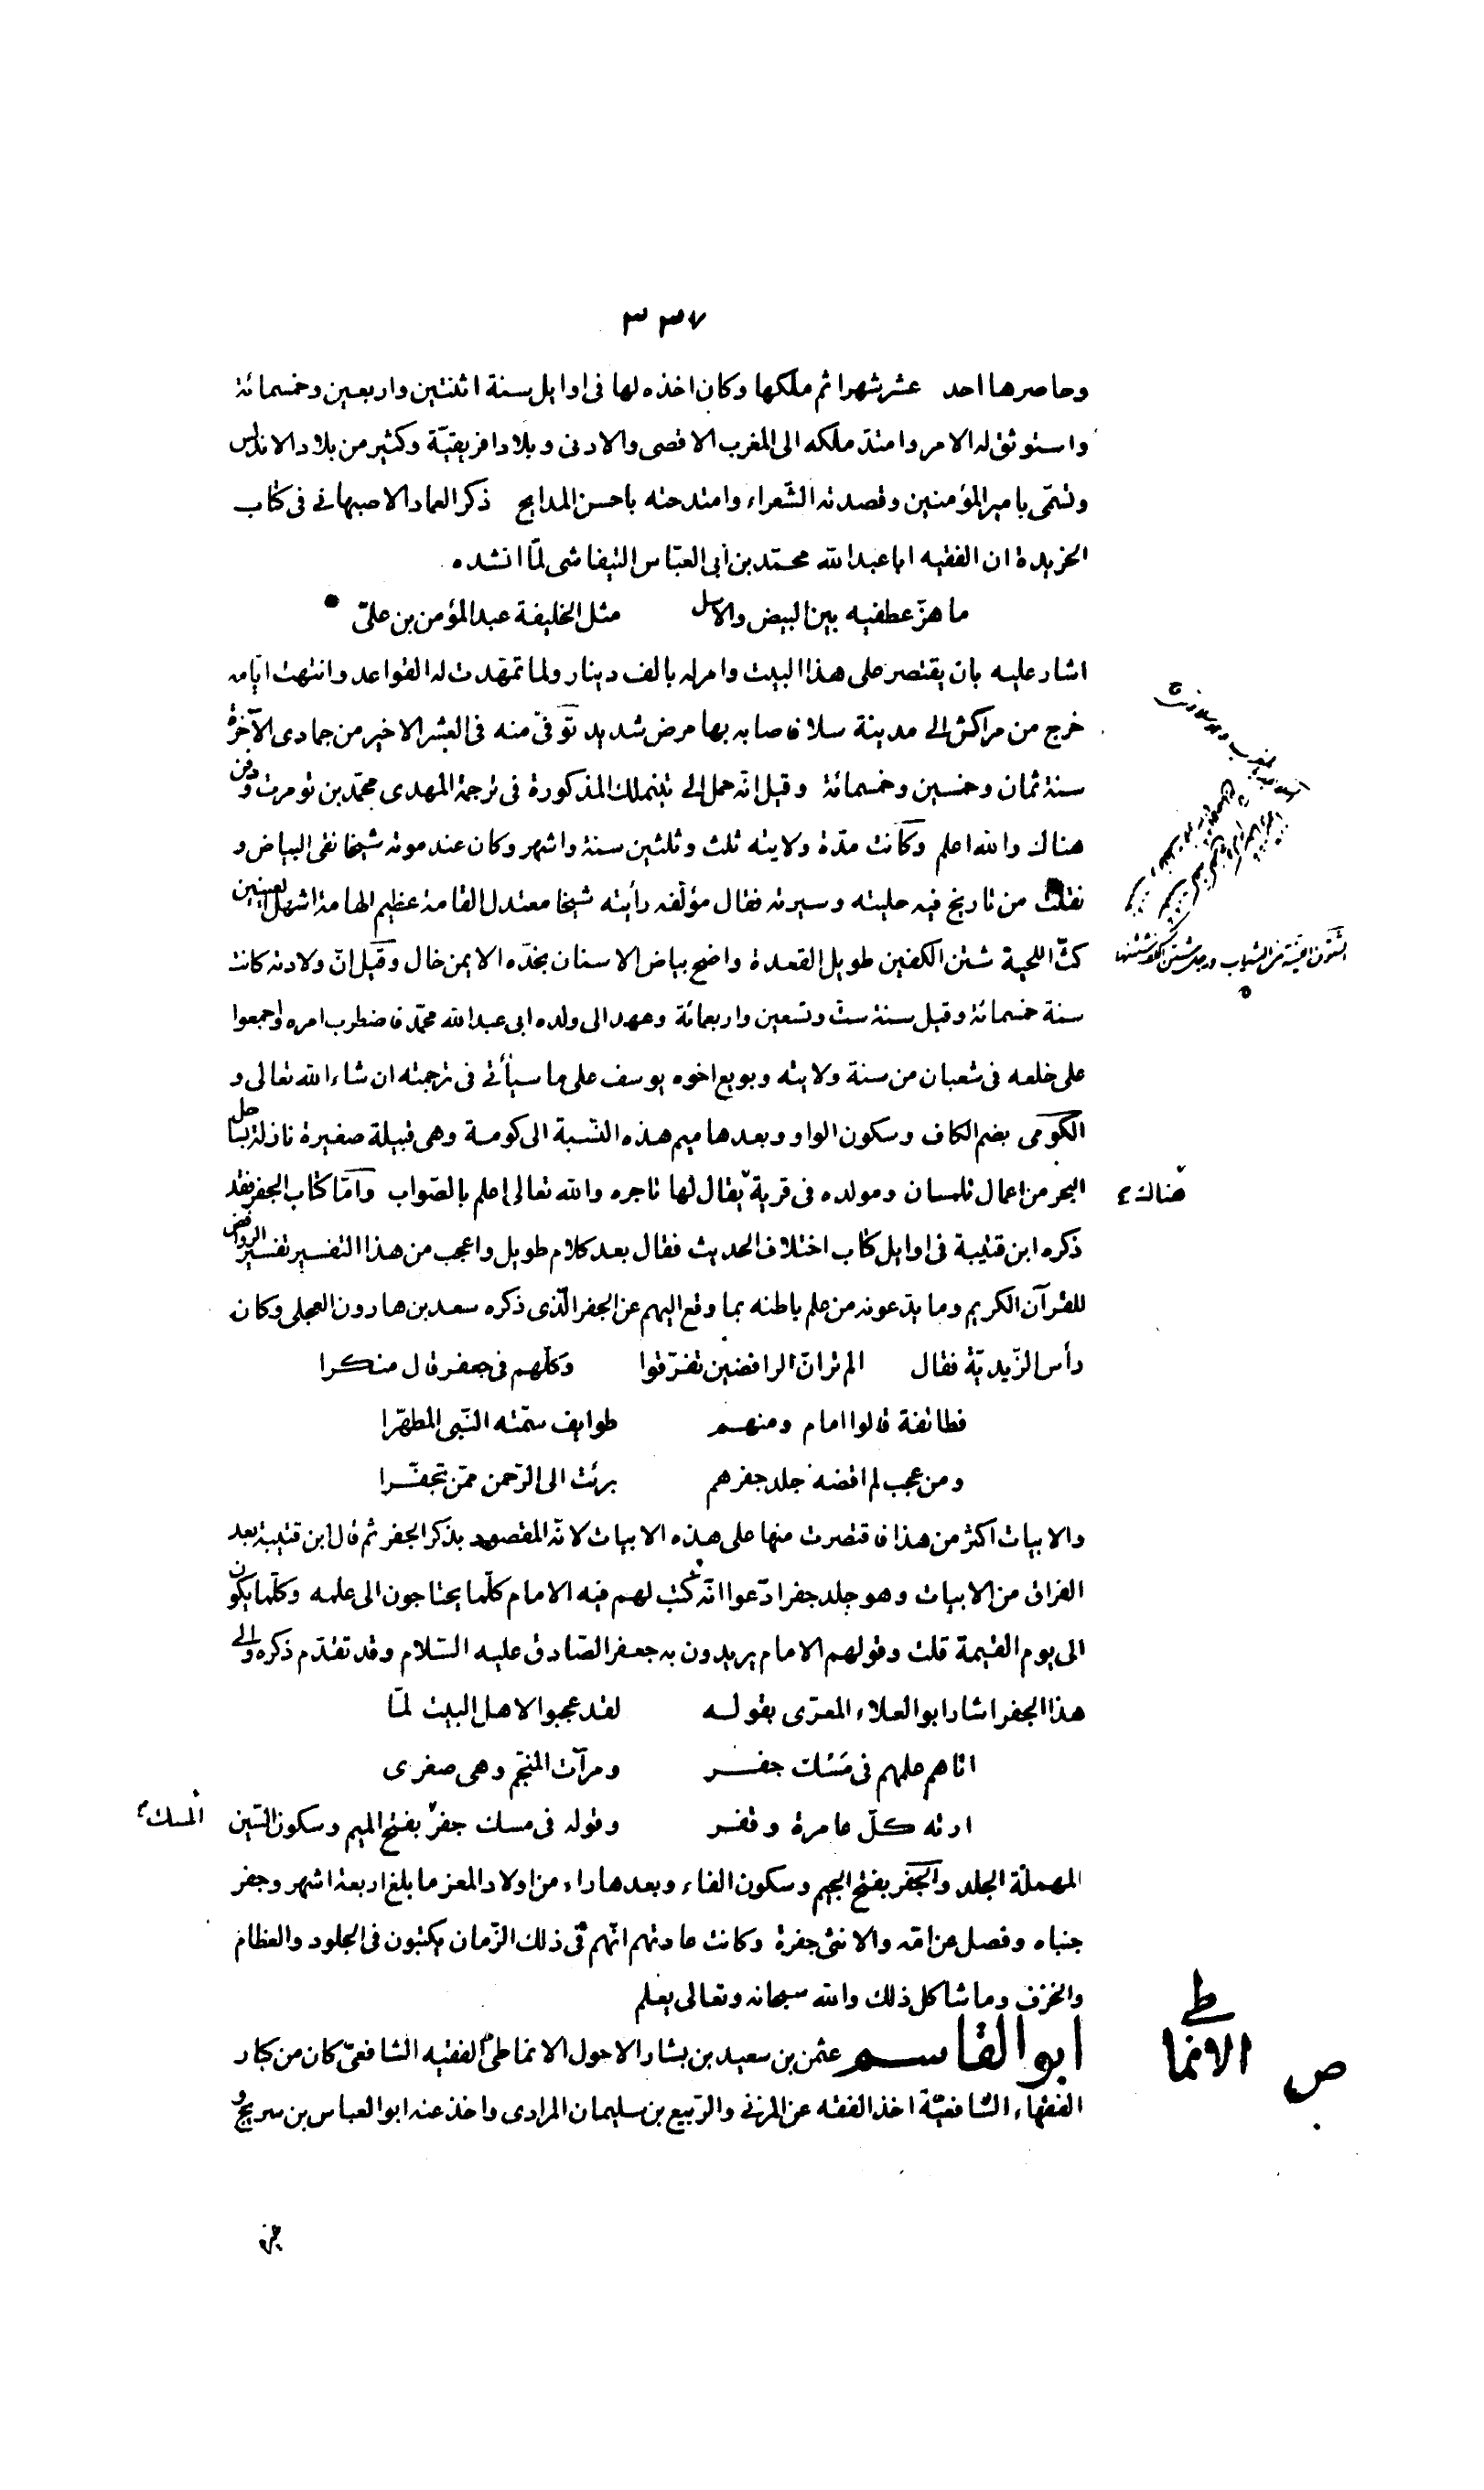 ٣٣٧
وحاصرها احد عشر شهرا ثم ملكها وكان اخذه لها فى اوايل سنة اثنتين واربعين وخمسمائة
واستوثق له الامر وامتدّ ملكه الى المغرب الاقصى والادنى وبلاد افريقيّة وكثير من بلاد الاندلس
وتسمّى بامير المؤمنين وقصدته الشّعراء وامتدحته باحسن المدايح ذكر العماد الاصبهانى فى كتاب
الخريدة ان الفقيه ابا عبدالله محمّد بن ابى العبّاس التيفاشى لمّا انشده
ما هزّ عطفيه بين البيض والاسل مثل الخليفة عبد المؤمن بن علىّ
اشار عليه بان يقتصر على هذا البيت وامر له بالف دينار ولما تمهّدت له القواعد وانتهت ايّامه
خرج من مراكش الى مدينة سلا فاصابه بها مرض شديد توفّى منه فى العشر الاخير من جمادى الآخرة
سنة ثمان وخمسين وخمسمائة وقيل انّه حمل الى تينملل المذكورة فى ترجمة المهدى محمّد بن تومرت ودفن
هناك والله اعلم وكانت مدّة ولايته ثلث وثلثين سنة واشهر وكان عند موته شيخا نقى البياض و
نقلت من تاريخ فيه حليته وسيرته فقال مؤلّفه رأيته شيخا معتدل القامة عظيم الهامة اشهل العينين
كثّ اللحية شثن الكفين طويل القعدة واضح بياض الاسنان بخدّه الايمن خال وقيل انّ ولادته كانت
سنة خمسمائة وقيل سنة ستّ وتسعين واربعمائة وعهد الى ولده ابى عبدالله محمّد فاضطرب امره واجمعوا
على خلعه فى شعبان من سنة ولايته وبويع اخوه يوسف على ما سيأتى فى ترجمته ان شاء الله تعالى و
الكومى بضم الكاف وسكون الواو وبعدها ميم هذه النّسبة الى كومة وهى قبيلة صغيرة نازلة بساحل
البحر من اعمال تلمسان ومولده فى قرية يقال لها تاجره والله تعالى اعلم بالصّواب وامّا كتاب الجفر فقد
هناك
ذكره ابن قتيبة فى اوايل كتاب اختلاف الحديث فقال بعد كلام طويل واعجب من هذا التفسير تفسير الروافض
للقرآن الكريم وما يدّعونه من علم باطنه بما وقع اليهم عن الجفر الّذى ذكره سعد بن هارون العجلى وكان
رأس الزّيديّة فقال الم تر انّ الرافضين تفرّقوا وكلّهم فى جعفر قال منكرا
فطائفة قالوا امام ومنهم طوايف سمّته النّبى المطهّرا
ومن عجب لم اقضه جلد جفرهم برئت الى الرّحمن ممّن تجفّرا
والابيات اكثر من هذا فاقتصرت منها على هذه الابيات لانّه المقصود بذكر الجفر ثم قال ابن قتيبة بعد
الفراق من الابيات وهو جلد جفر ادّعوا انّه كتب لهم فيه الامام كلّما يحتاجون الى علمه وكلّما يكون
الى يوم القيمة قلت وقولهم الامام يريدون به جعفر الصّادق عليه السّلام وقد تقدّم ذكره والى
هذا الجفر اشار ابو العلاء المعرّى بقوله لقد عجبوا لاهل البيت لمّا
اتاهم علمهم فى مَسْك جفر ومرآت المنجّم وهى صغرى
ارته كلّ عامرة وقفر وقوله فى مسك جفر بفتح الميم وسكون السّين
المسك
المهملة الجلد والجفر بفتح الجيم وسكون الفاء وبعدها راء من اولاد المعز ما بلغ اربعة اشهر وجفر
جنباه وفصل عن امّه والانثى جفرة وكانت عادتهم انّهم فى ذلك الزّمان يكتبون فى الجلود والعظام
والخزف وما شاكل ذلك والله سبحانه وتعالى يعلم
ابو القاسم عثمن بن سعيد بن بشار الاحول الانماطى الفقيه الشافعىّ كان من كبار
الانماطى
ص
الفقهاء الشّافعيّة اخذ الفقه عن المزنى والرّبيع بن سليمان المرادى واخذ عنه ابو العباس بن سريج و